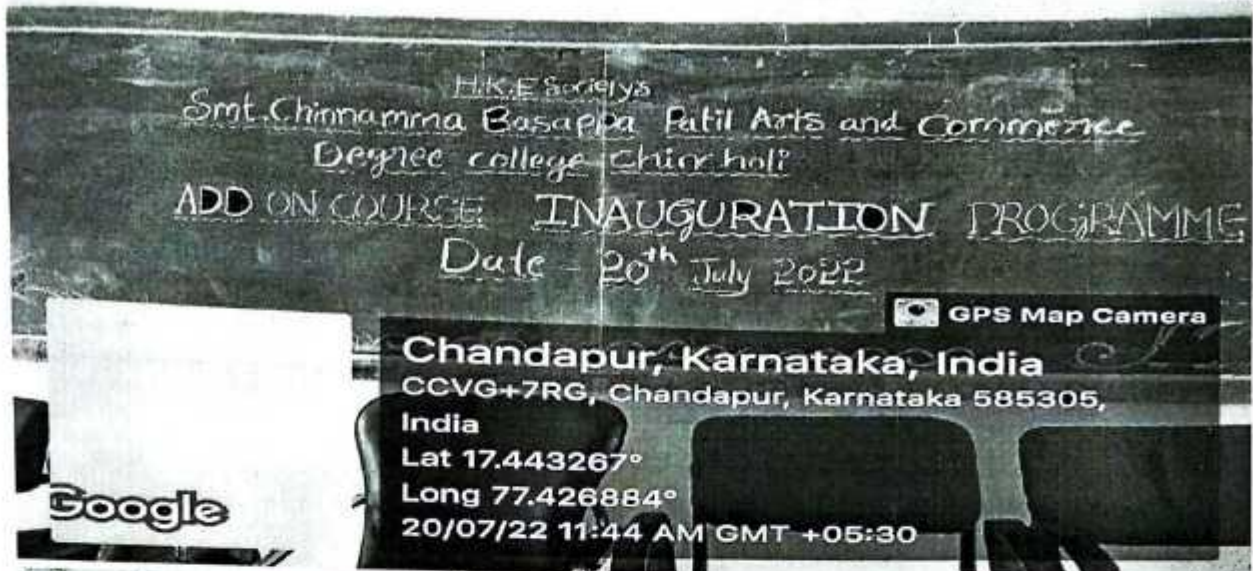 H.K.E Society's
Smt. Chinnamma Basappa Patil Arts and Commerce
Degree college Chincholi
ADD ON COURSE INAUGURATION PROGRAMME
Date - 20th July 2022
GPS Map Camera
Chandapur, Karnataka, India
CCVG+7RG, Chandapur, Karnataka 585305,
India
Lat 17.443267°
Long 77.426884°
20/07/22 11:44 AM GMT +05:30
Google